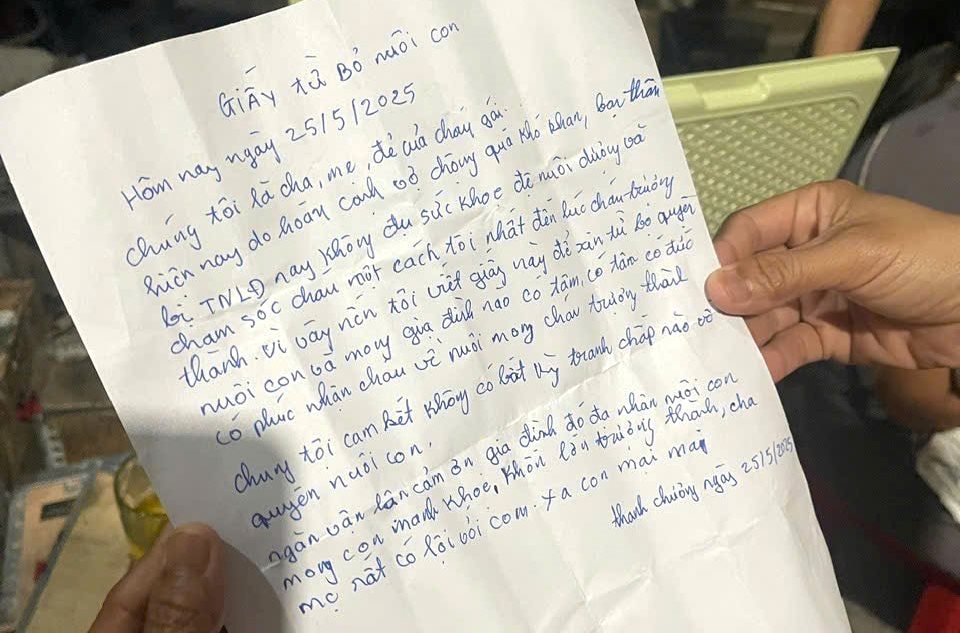 GIẤY từ BỎ nuôi con
Hôm nay ngày 25/5/2025
chúng tôi là cha, mẹ, đẻ của cháu gái.
hiện nay do hoàn cảnh vợ chồng quá khó khăn, bạn thân
bị TNLĐ nay không đủ sức khoẻ để nuôi dưỡng và
chăm sóc cháu một cách tôi nhất đến lúc cháu trưởng
thành. vì vậy nên tôi viết giấy này để xin từ bỏ quyền
nuôi con và mong gia đình nào có tâm, có tầm có đức
có phúc nhận cháu về nuôi mong cháu trưởng thành
chúng tôi cam kết không có bất kỳ tranh chấp nào về
quyền nuôi con.
ngàn vạn lần cảm ơn gia đình đó đã nhận nuôi con
mong con mạnh khoẻ, khôn lớn trưởng thành, cha
mẹ rất có lỗi với con. xa con mãi mãi
thanh chương ngày 25/5/2025